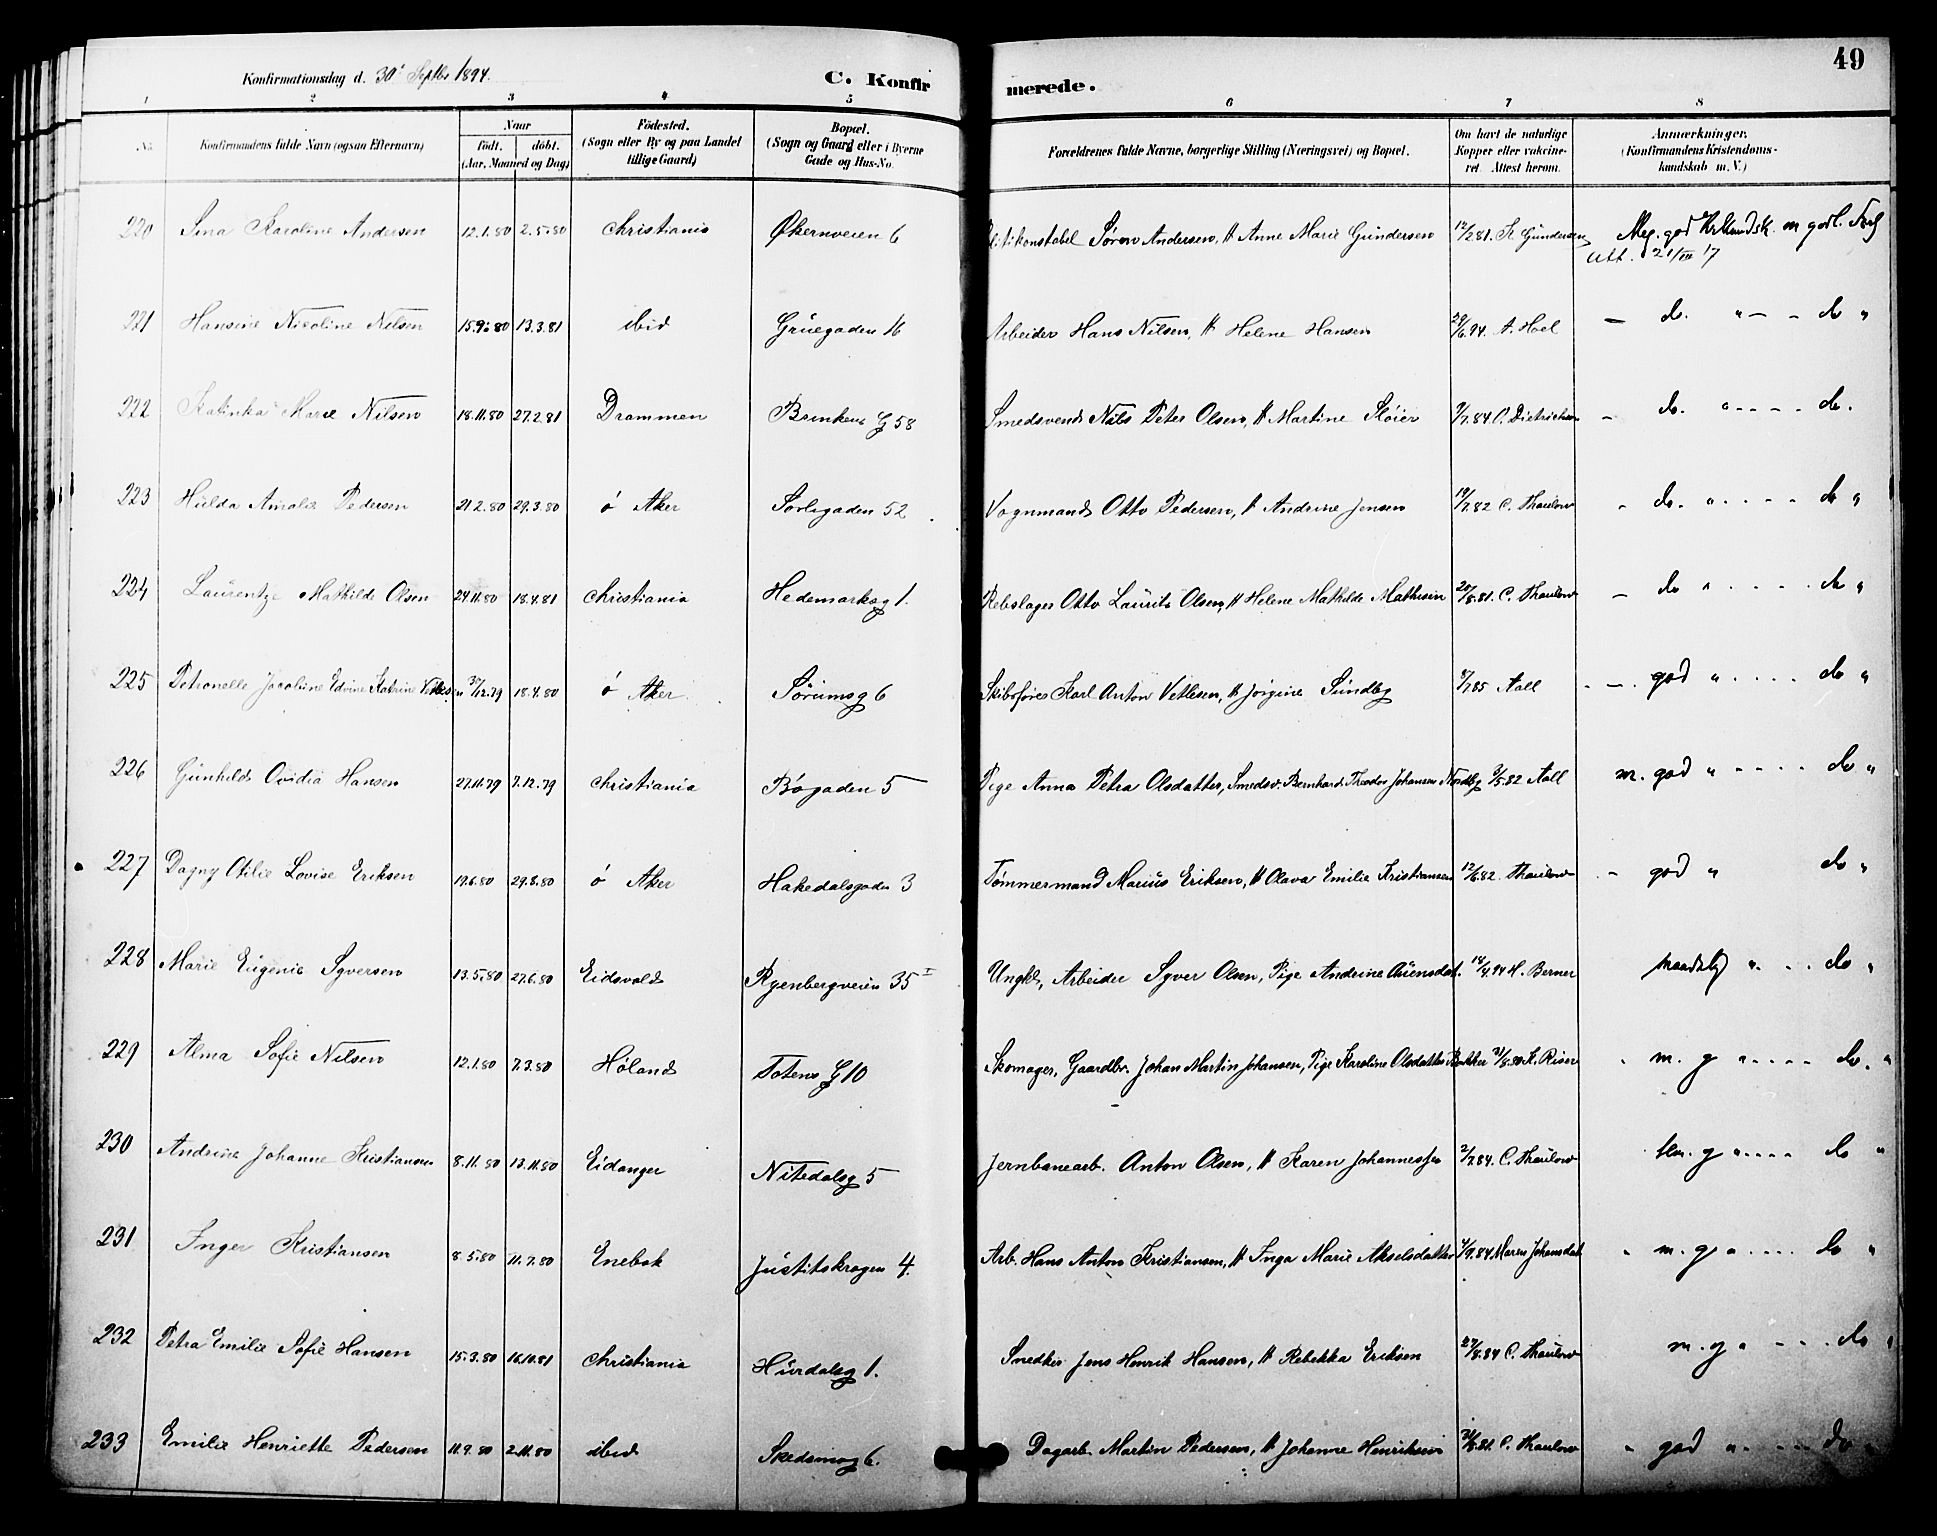 49
Konfirmationsdag d. 30' Septbr 1894.
C. Konfirmerede.
1 2 3 4 5 6 7 8
No. Konfirmandens fulde Navn (ogsaa Efternavn) Naar födt. döbt. (Aar, Maaned og Dag) Födested. (Sogn eller By og paa Landet tillige Gaard) Bopæl. (Sogn og Gaard eller i Byerne Gade og Hus-No. Forældrenes fulde Navne, borgerlige Stilling (Næringsvei) og Bopæl. Om havt de naturlige Kopper eller vakcineret. Attest herom. Anmærkninger. (Konfirmandens Kristendomskundskab m. V.)
220 Sina Karoline Andersen 12.1.80 2.5.80 Christiania Økernveien 6 Søren Andersen, Anne Marie Gundersen 12/2 81. K Gundersen Meg. god m godt.
Att. 21/III 17
221 Hansine Nicoline Nilsen 15.9.80 13.3.81 ibid Grüegaden 16 Arbeider Hans Nilsen, Helene Hansen 29/6.94. A. Hoel — do. " — - do "
222 Katinka Marie Nilsen 18.11.80 27.2.81 Drammen Brinkens G 58 Smedsvend Nils Peter Olsen, Martine Sløier 9/7.84 C. Dietrichson - do. " - - - - do.
223 Hulda Amalie Pedersen 21.2.80 29.3.80 ö Aker Sørligaden 52 Vognmand Otto Pedersen, Andrine Jensen 19/7.82 C. Thaulow - do. " - - - - do "
224 Laurentze Mathilde Olsen 24.11.80 18.4.81 Christiania Hedemarksg 1. Rebslager Otto Laurits Olsen, Helene Mathilde Mathisen 20/8.81. C. Thaulow - do " - - - - do "
225 Petronelle Jocobine Edvine Katrine 30/12.79 18.4.80 ö Aker Sørumsg 6 Skibsfører Karl Anton Vetlesen, Jørgine Sundby 8/7 85 Aall - god " - - - - do "
226 Gunhild Ovidia Hansen 27.11.79 7.12.79 Christiania Bögaden 5 Pige Anna Petra Olsdatter, Smedsv. Bernhard Theodor Johansen Nordby 3/5.82 Aall m. god " - - - - do "
227 Dagny Otilie Lovise Eriksen 19.6.80 29.8.80 ö Aker Hakedalsgaden 3 Tømmermand Marius Eriksen, Olava Emilie Kristiansen 12/6.82. Thaulow - god " do "
228 Marie Eugenie Syversen 13.5.80 27.6.80 Eidsvold Ryenbergveien 35 I Ungk., Arbeider Syver Olsen, Pige Andrine 14/4.94 H. Berner maadelig " - - do "
229 Alma Sofie Nilsen 12.1.80 7.3.80 Höland Totens G 10 Skomager, Gaardbr. Johan Martin Johansen, Pige Karoline Olsdatter Bakker 31/8.80 K. Riser " m. g " - - - - do. "
230 Andrine Johanne Kristiansen 8.11.80 13.11.80 Eidanger Nitedalsg 5 Jernbanearb. Anton Olsen, Karen 2/7.84. C. Thaulow g " - - - - do "
231 Inger Kristiansen 8.5.80 11.7.80 Enebak Justitskrogen 4. Arb. Hans Anton Kristiansen, Inga Marie Akselsdatter 4/9.84 Maren Johansdat " m. g " - - - - do "
232 Petra Emilie Sofie Hansen 15.3.80 16.10.81 Christiania Hurdalsg 1. Snedker Jens Henrik Hansen, Rebekka Eriksen 27/8.84 C. Thaulow m. g " - - - do "
233 Emilie Henriette Pedersen 11.9.80 2.11.80 ibid Skedsmog 6. Dagarb. Martin Pedersen, Johanne Henriksen 31/8.81. C. Thaulow " god " - - - - do "